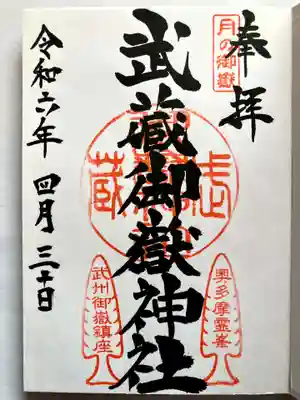 奉拝
月の御嶽
武蔵御嶽神社
奥多摩霊峯
武州御嶽鎮座
令和六年 四月 三十日